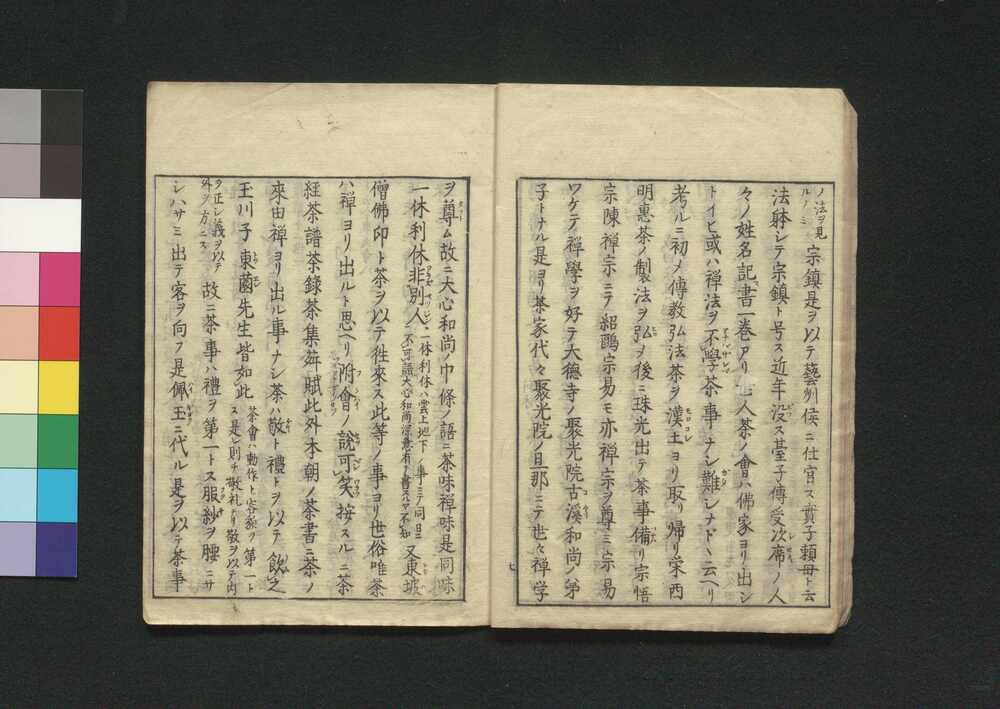 ノ法ヲ見
ルノミ
宗鎮是ヲ以テ藝州侯ニ仕官ス賁子頼母ト云
法躰シテ宗鎮ト号ス近年没ス臺子傳受次席ノ人
々ノ姓名記書一巻アリ世人茶ノ會ハ佛家ヨリ出シ
トイヒ或ハ禅法ヲ不學茶事ナシ難シナドヽ云ヘリ
考ルニ初メ傳教弘法茶ヲ漢土ヨリ取リ帰リ栄西
明惠茶ノ製法ヲ弘メ後ニ珠光出テ茶事備リ宗悟
宗陳禅宗ニテ紹鷗宗易モ亦禅宗ヲ尊ミ宗易
ワケテ禅學ヲ好テ大德寺ノ聚光院古溪和尚ノ弟
子トナル是ヨリ茶家代々聚光院ノ旦那ニテ世々禅学
七
ヲ尊ム故ニ大心和尚ノ巾條ノ語ニ茶味禅味是同味
一休利休非別人
一休利休ハ雲上地下ノ事ニテ同日ニ
不可論大心和尚深意有ト書スルヿ不知
又東坡
僧佛印ト茶ヲ以テ徃來ス此等ノ事ヨリ世俗唯茶
ハ禅ヨリ出ルト思ヘリ附會ノ說可笑按スルニ茶
経茶譜茶録茶集舜賦此外本朝ノ茶書ニ茶ノ
來由禅ヨリ出ル事ナシ茶ハ敬ト禮トヲ以テ飲之
玉川子東薗先生皆如此
茶會ハ動作ト容貌ヲ第一ト
ス是レ則チ敬礼ナリ敬ヲ以テ内
ヲ正シ義ヲ以テ
外ヲ方ニス
故ニ茶事ハ禮ヲ第一トス服紗ヲ腰ニサ
シハサミ出テ客ヲ向フ是佩玉ニ代ル是ヲ以テ茶事